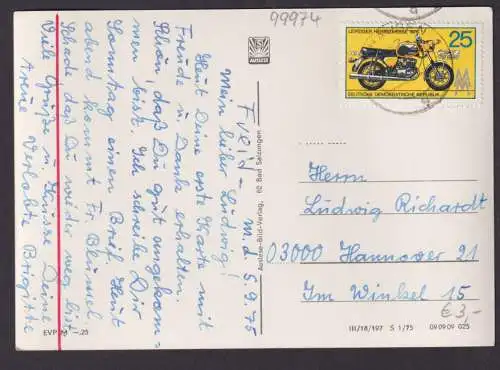 99974
AUSLESE
LEIPZIGER HERBSTMESSE 1975
25
DEUTSCHE DEMOKRATISCHE REPUBLIK
d. 5.9.75
Mein lieber Ludwig!
Heut Deine erste Karte mit
Freude u. Dank erhalten.
Schön, daß Du gut angekom-
men bist. Ich schreibe Dir
Sonntag einen Brief. Heut
abend kommt Fr. Blümel
Schade, daß Du wieder weg bist.
Viele Grüße u. Küsse Deine
Verlobte Brigitte
Auslese-Bild-Verlag, 62 Bad Salzungen
Herrn
Ludwig Richardt
03000 Hannover 21
Im Winkel 15
€ 3,-
EVP M -,25
III/18/197 S 1/75 09 09 09 025